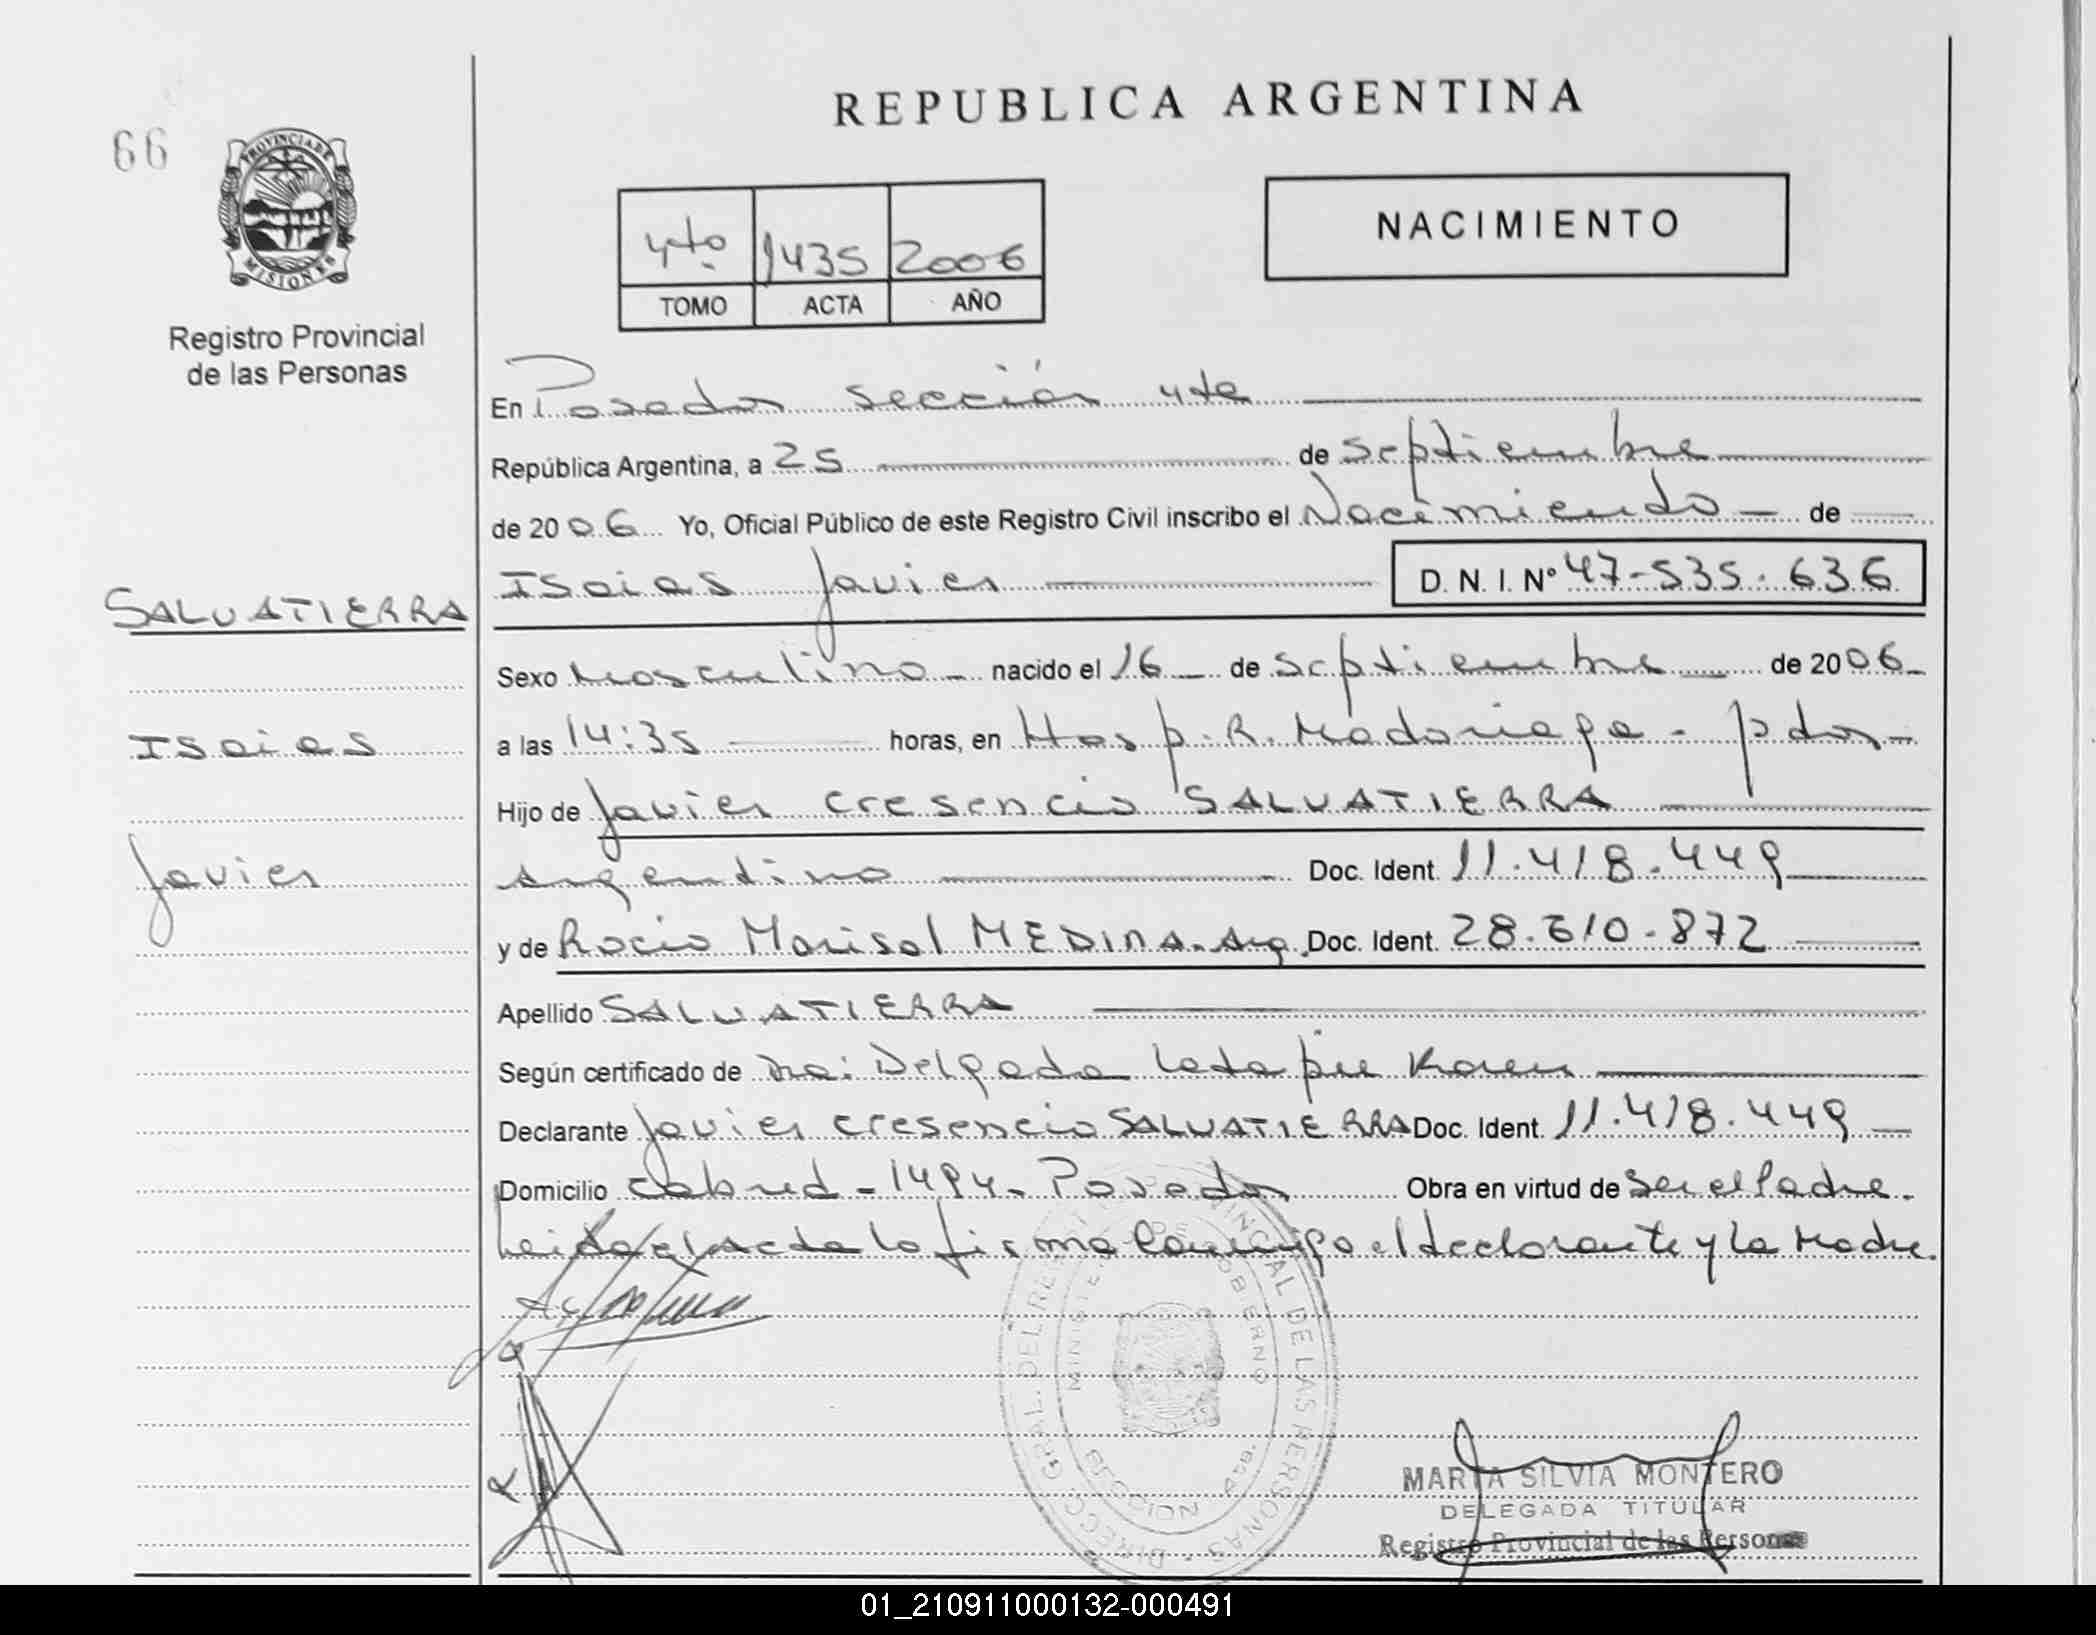 REPUBLICA ARGENTINA
66
PROVINCIA DE
MISIONES
Registro Provincial
de las Personas
4to 1435 2006
TOMO ACTA AÑO
NACIMIENTO
En Posadas sección 4ta
República Argentina, a 25 de septiembre
de 2006 Yo, Oficial Público de este Registro Civil inscribo el Nacimiento de
Isaias Javier D. N. I. Nº 47-535-636
SALVATIERRA
Isaias
Javier
Sexo Masculino nacido el 16 de septiembre de 2006
a las 14:35 horas, en Hosp. R. Madariaga - pdas -
Hijo de Javier Cresencio SALVATIERRA
Argentino Doc. Ident. 11.418.449
y de Rocio Marisol MEDINA. Arg. Doc. Ident. 28.610.872
Apellido SALVATIERRA
Según certificado de Dra: Delgado Karen
Declarante Javier Cresencio SALVATIERRA Doc. Ident. 11.418.449
Domicilio Cabred - 1494 - Posadas Obra en virtud de ser el Padre.
Leida el acta la firma conmigo el declarante y la Madre.
DIRECC. GRAL. DEL REGIST PROVINCIAL DE LAS PERSONAS
MINISTERIO DE GOBIERNO
SECCION 4ta.
MARTA SILVIA MONTERO
DELEGADA TITULAR
Registro Provincial de las Personas
01_210911000132-000491